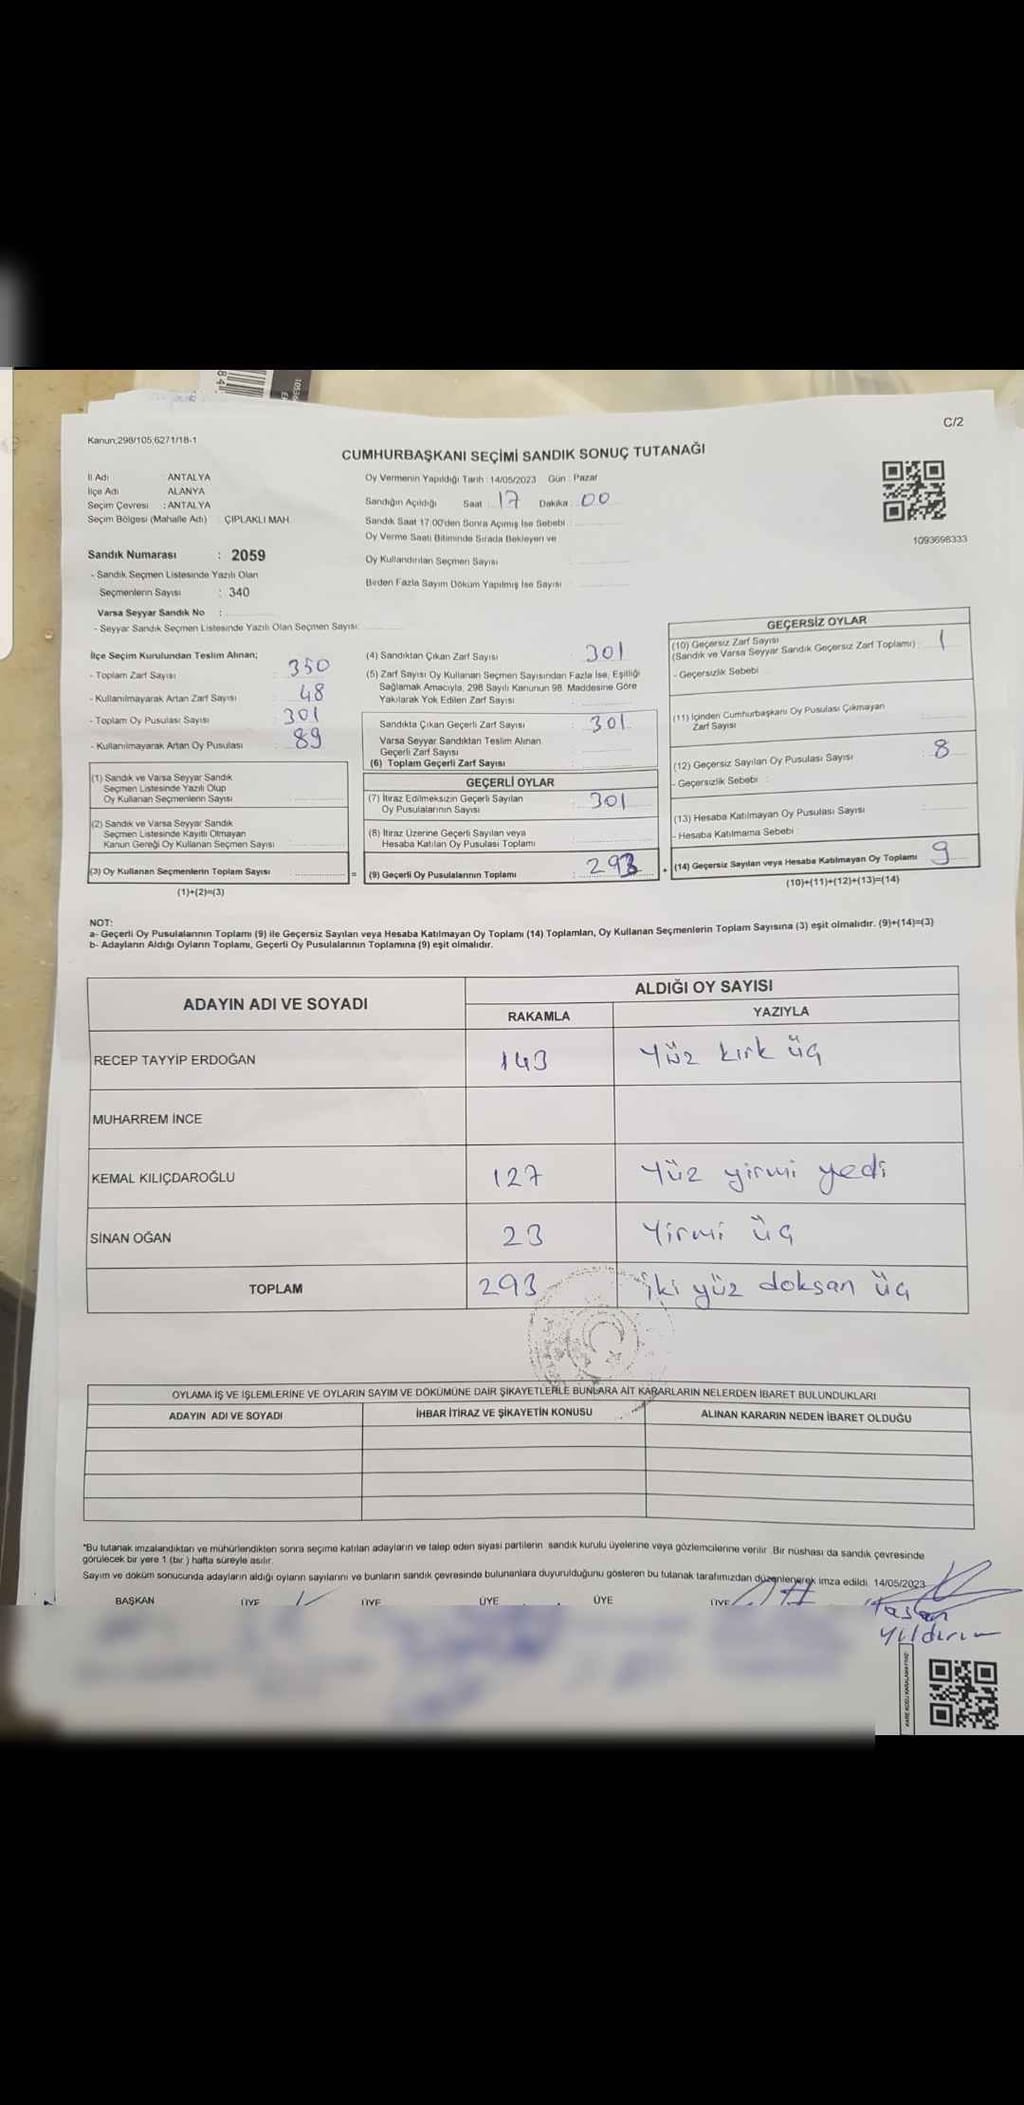 C/2
Kanun,298/105,6271/18-1
CUMHURBAŞKANI SEÇİMİ SANDIK SONUÇ TUTANAĞI
İl Adı ANTALYA
İlçe Adı ALANYA
Seçim Çevresi : ANTALYA
Seçim Bölgesi (Mahalle Adı) ÇIPLAKLI MAH.
Oy Vermenin Yapıldığı Tarih : 14/05/2023 Gün : Pazar
Sandığın Açıldığı Saat 17 Dakika : 00
Sandık Saat 17.00'den Sonra Açımış İse Sebebi
Oy Verme Saati Bitiminde Sırada Bekleyen ve
Oy Kullandırılan Seçmen Sayısı
Birden Fazla Sayım Döküm Yapılmış İse Sayısı
1093698333
Sandık Numarası : 2059
- Sandık Seçmen Listesinde Yazılı Olan
Seçmenlerin Sayısı : 340
Varsa Seyyar Sandık No :
- Seyyar Sandık Seçmen Listesinde Yazılı Olan Seçmen Sayısı:
İlçe Seçim Kurulundan Teslim Alınan;
- Toplam Zarf Sayısı 350
- Kullanılmayarak Artan Zarf Sayısı 48
- Toplam Oy Pusulası Sayısı 301
- Kullanılmayarak Artan Oy Pusulası 89
(1) Sandık ve Varsa Seyyar Sandık
Seçmen Listesinde Yazılı Olup
Oy Kullanan Seçmenlerin Sayısı
(2) Sandık ve Varsa Seyyar Sandık
Seçmen Listesinde Kayıtlı Olmayan
Kanun Gereği Oy Kullanan Seçmen Sayısı
(3) Oy Kullanan Seçmenlerin Toplam Sayısı =
(1)+(2)=(3)
(4) Sandıktan Çıkan Zarf Sayısı 301
(5) Zarf Sayısı Oy Kullanan Seçmen Sayısından Fazla İse, Eşitliği
Sağlamak Amacıyla, 298 Sayılı Kanunun 98. Maddesine Göre
Yakılarak Yok Edilen Zarf Sayısı
Sandıkta Çıkan Geçerli Zarf Sayısı : 301
Varsa Seyyar Sandıktan Teslim Alınan
Geçerli Zarf Sayısı
(6) Toplam Geçerli Zarf Sayısı
GEÇERLİ OYLAR
(7) İtiraz Edilmeksizin Geçerli Sayılan
Oy Pusulalarının Sayısı : 301
(8) İtiraz Üzerine Geçerli Sayılan veya
Hesaba Katılan Oy Pusulası Toplamı
(9) Geçerli Oy Pusulalarının Toplamı : 293 +
GEÇERSİZ OYLAR
(10) Geçersiz Zarf Sayısı
(Sandık ve Varsa Seyyar Sandık Geçersiz Zarf Toplamı) : 1
- Geçersizlik Sebebi
(11) İçinden Cumhurbaşkanı Oy Pusulası Çıkmayan
Zarf Sayısı
(12) Geçersiz Sayılan Oy Pusulası Sayısı : 8
- Geçersizlik Sebebi
(13) Hesaba Katılmayan Oy Pusulası Sayısı
- Hesaba Katılmama Sebebi
(14) Geçersiz Sayılan veya Hesaba Katılmayan Oy Toplamı 9
(10)+(11)+(12)+(13)=(14)
NOT:
a- Geçerli Oy Pusulalarının Toplamı (9) ile Geçersiz Sayılan veya Hesaba Katılmayan Oy Toplamı (14) Toplamları, Oy Kullanan Seçmenlerin Toplam Sayısına (3) eşit olmalıdır. (9)+(14)=(3)
b- Adayların Aldığı Oyların Toplamı, Geçerli Oy Pusulalarının Toplamına (9) eşit olmalıdır.
ADAYIN ADI VE SOYADI
ALDIĞI OY SAYISI
RAKAMLA YAZIYLA
RECEP TAYYİP ERDOĞAN 143 Yüz kırk üç
MUHARREM İNCE
KEMAL KILIÇDAROĞLU 127 Yüz yirmi yedi
SİNAN OĞAN 23 Yirmi üç
TOPLAM 293 iki yüz doksan üç
OYLAMA İŞ VE İŞLEMLERİNE VE OYLARIN SAYIM VE DÖKÜMÜNE DAİR ŞİKAYETLERLE BUNLARA AİT KARARLARIN NELERDEN İBARET BULUNDUKLARI
ADAYIN ADI VE SOYADI İHBAR İTİRAZ VE ŞİKAYETİN KONUSU ALINAN KARARIN NEDEN İBARET OLDUĞU
*Bu tutanak imzalandıktan ve mühürlendikten sonra seçime katılan adayların ve talep eden siyasi partilerin sandık kurulu üyelerine veya gözlemcilerine verilir. Bir nüshası da sandık çevresinde
görülecek bir yere 1 (bir ) hafta süreyle asılır.
Sayım ve döküm sonucunda adayların aldığı oyların sayılarını ve bunların sandık çevresinde bulunanlara duyurulduğunu gösteren bu tutanak tarafımızdan düzenlenerek imza edildi. 14/05/2023
BAŞKAN ÜYE ÜYE ÜYE ÜYE ÜYE
Hasan
Yıldırım